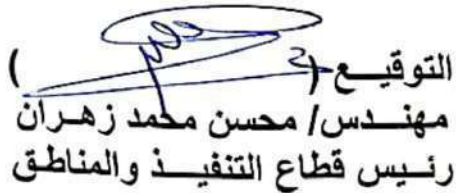 التوقيـــع (                    )
مهنـــدس/ محسن محمد زهـران
رئـيس قطاع التنفيـــذ والمناطـق